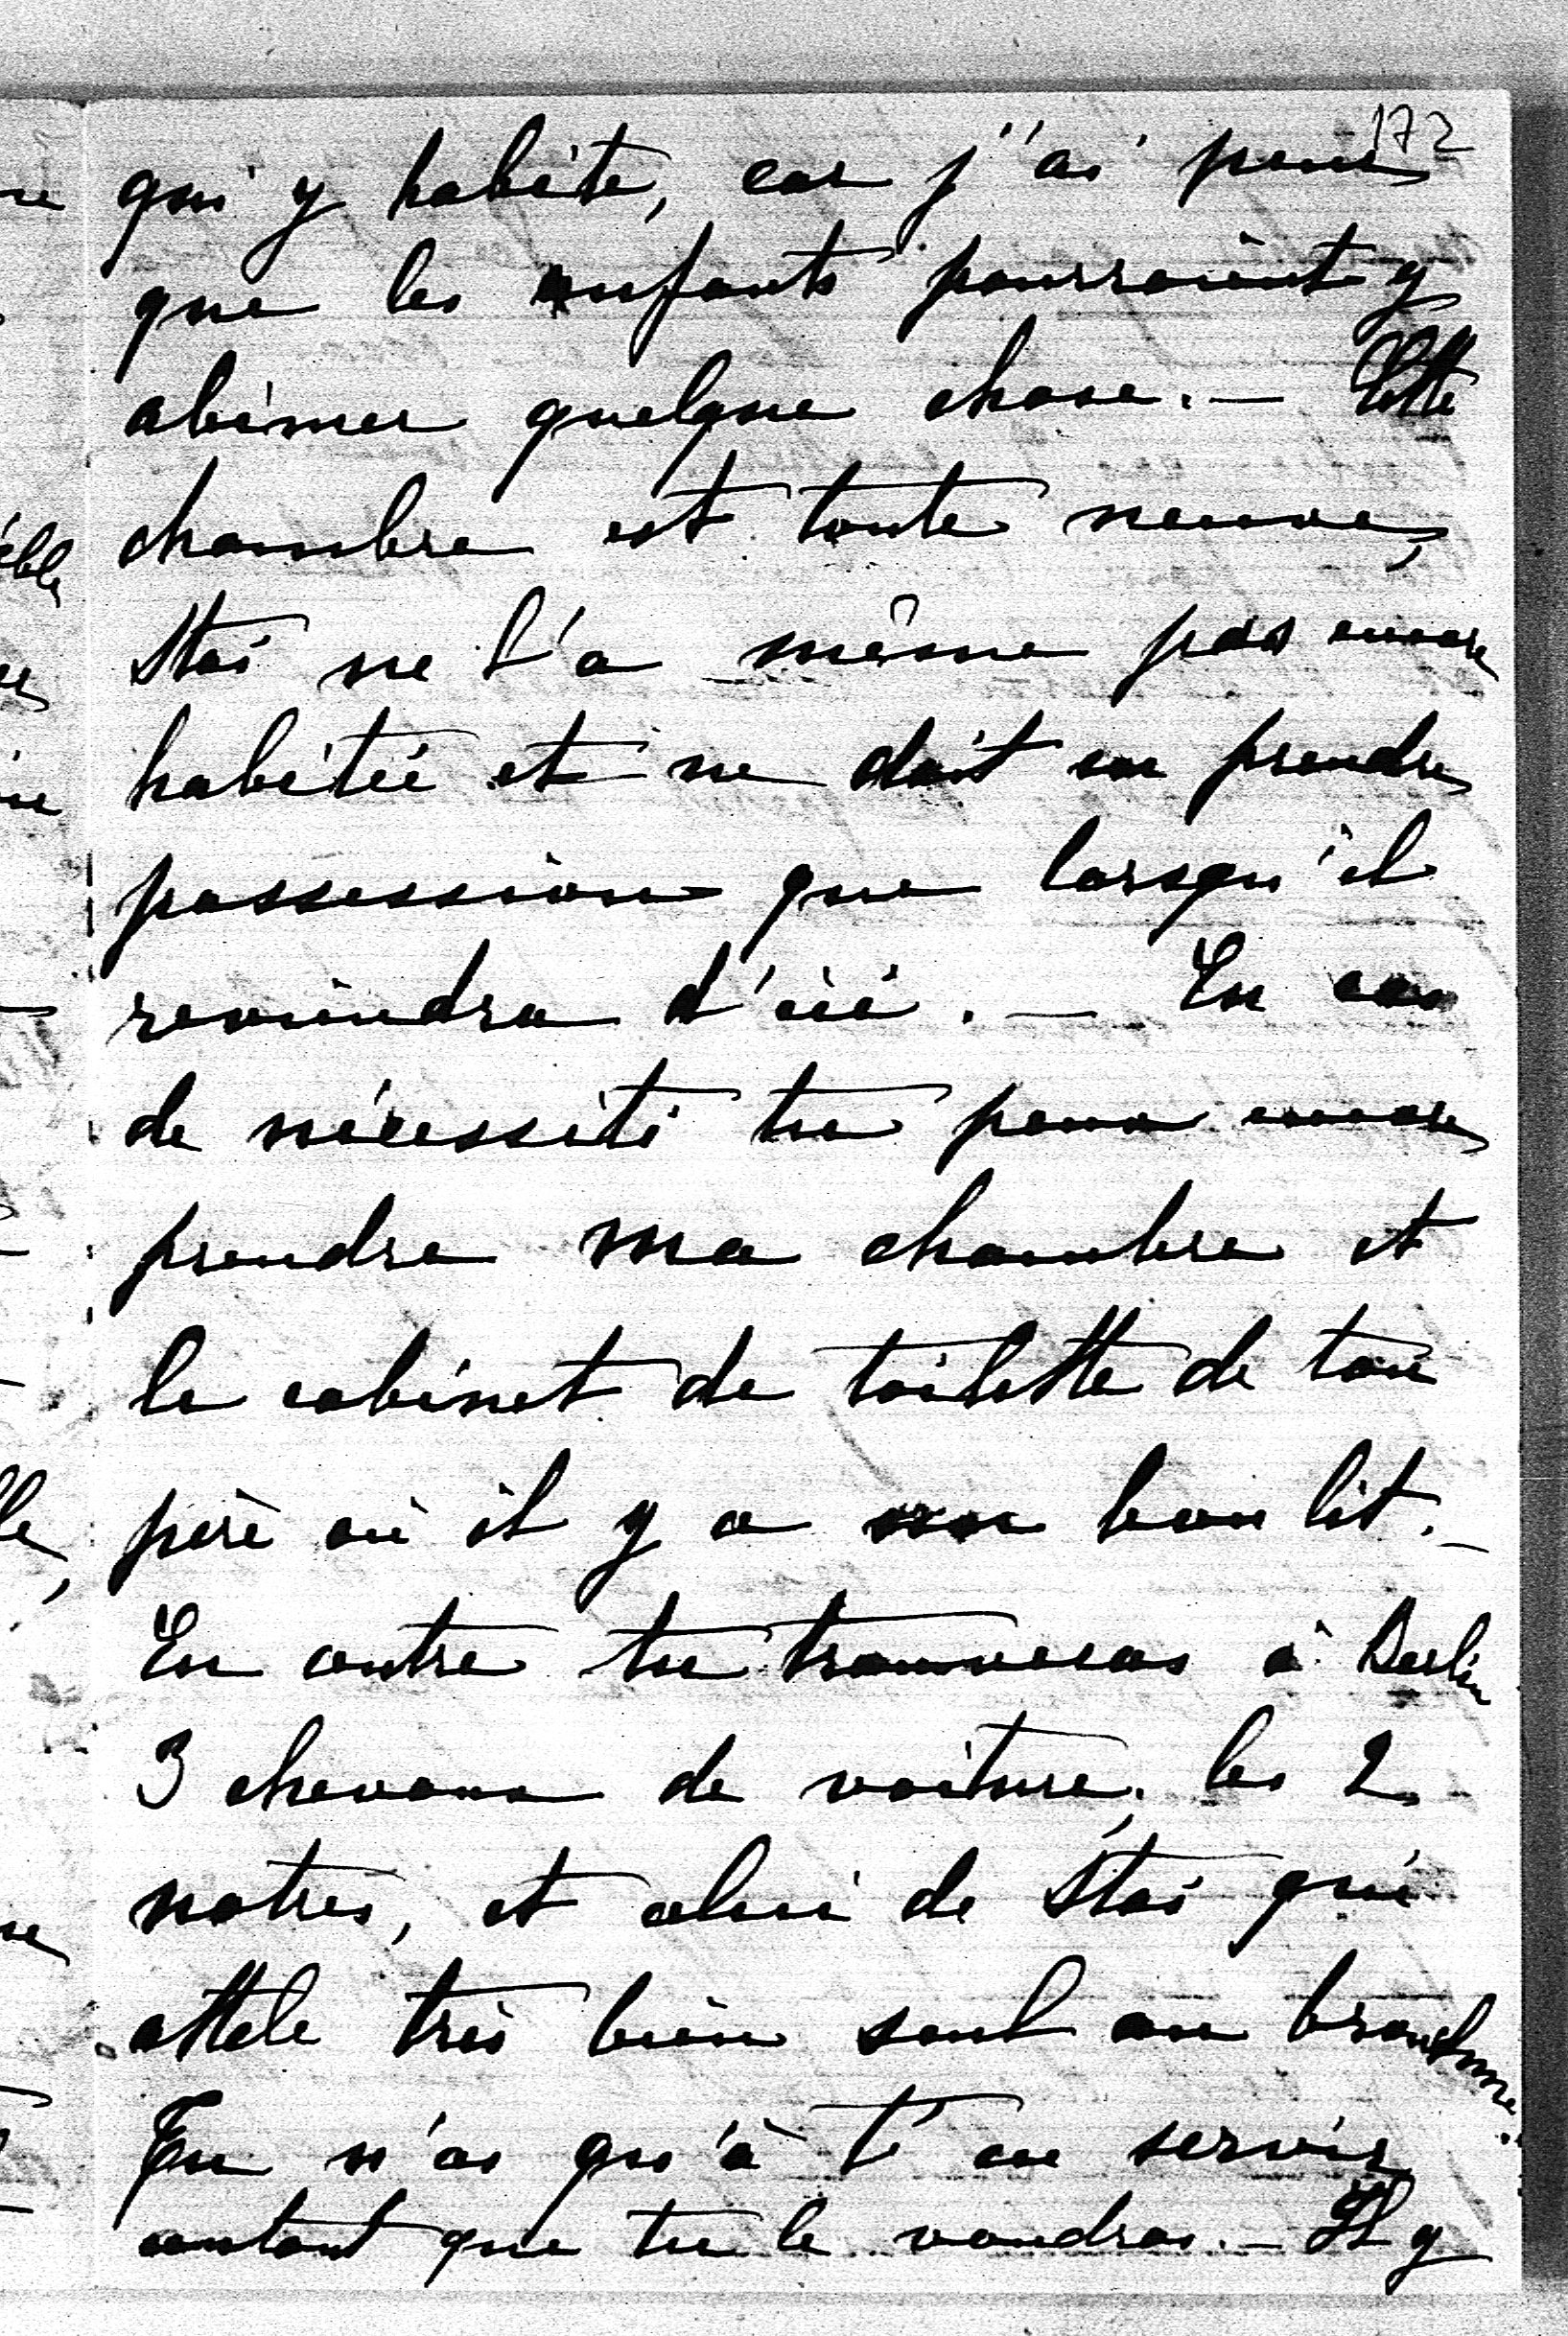 172
qui y habite, car j'ai peur
que les enfants pourraient y
abimer quelque chose. — Cette
chambre est toute neuve,
Stas ne l'a même pas encore
habitée et ne doit en prendre
possession que lorsqu'il
reviendra d'ici. — En cas
de nécessité tu peux encore
prendre ma chambre et
le cabinet de toilette de ton
père où il y a un bon lit. —
En outre tu trouveras à Berlin
3 chevaux de voiture, les 2
notres, et celui de Stas qui
attele très bien seul au
Tu n'as qu'à t'en servir
autant que tu le voudras. — Il y